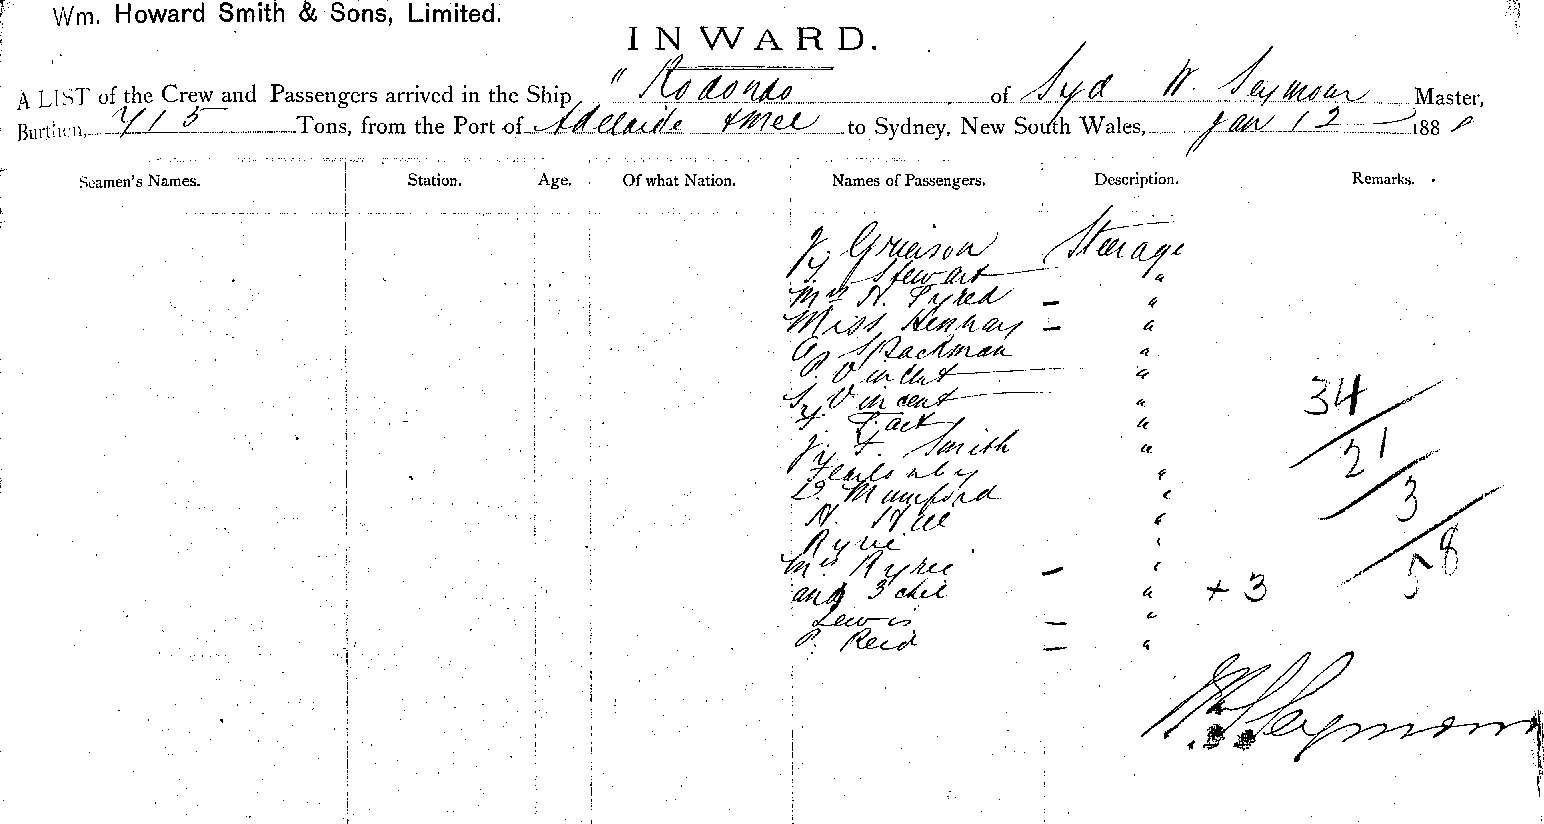 Wm. Howard Smith & Sons, Limited.
INWARD.
A LIST of the Crew and Passengers arrived in the Ship " Rodondo of Syd W. Seymour Master,
Burthen, 715 Tons, from the Port of Adelaide & Mel to Sydney, New South Wales, Jan 12 188
Seamen's Names. Station. Age. Of what Nation. Names of Passengers. Description. Remarks.
Grierson Steerage
Stewart "
Mrs H. Tyred — "
Miss Hennay — "
Spackman "
P. Vincent "
Vincent "
"
34
F. Smith "
21
"
D. Mumford "
3
H. Hill "
Ryrie "
58
Mrs Ryrie — "
and 3 chil " + 3
Lewis — "
P. Reid — "
Wm Seymour